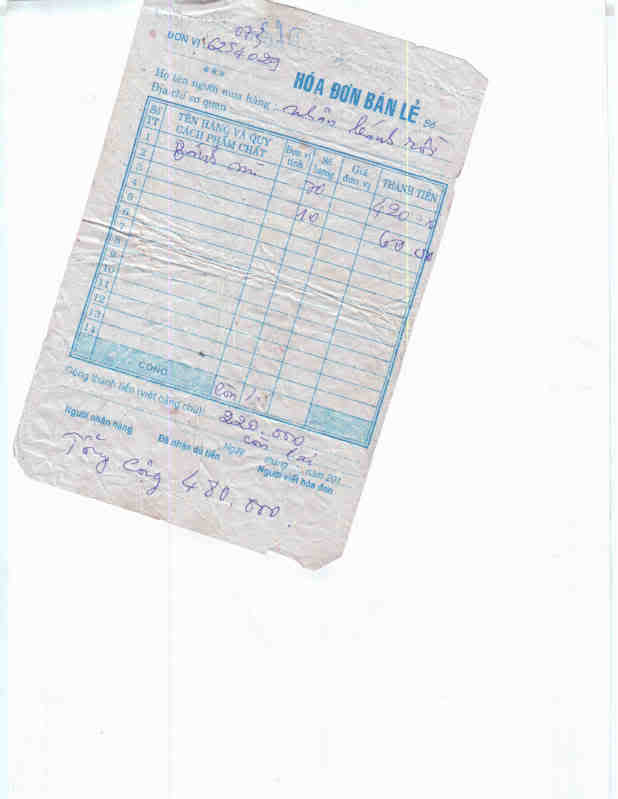 073
ĐƠN VỊ: 6254029
***
HÓA ĐƠN BÁN LẺ
Số
Họ tên người mua hàng: nhân
Địa chỉ cơ quan
Số TT
TÊN HÀNG VÀ QUY CÁCH PHẨM CHẤT
Đơn vị tính
Số lượng
Giá đơn vị
THÀNH TIỀN
1 Bánh mì 70 420
2
3 10 60
4
5
6
7
8
9
10
11
12
13
14
CỘNG
Cộng thành tiền (viết bằng chữ): 220.000
còn lại
Ngày tháng năm 201
Người nhận hàng
Đã nhận đủ tiền
Người viết hóa đơn
Tổng cộng 480.000.